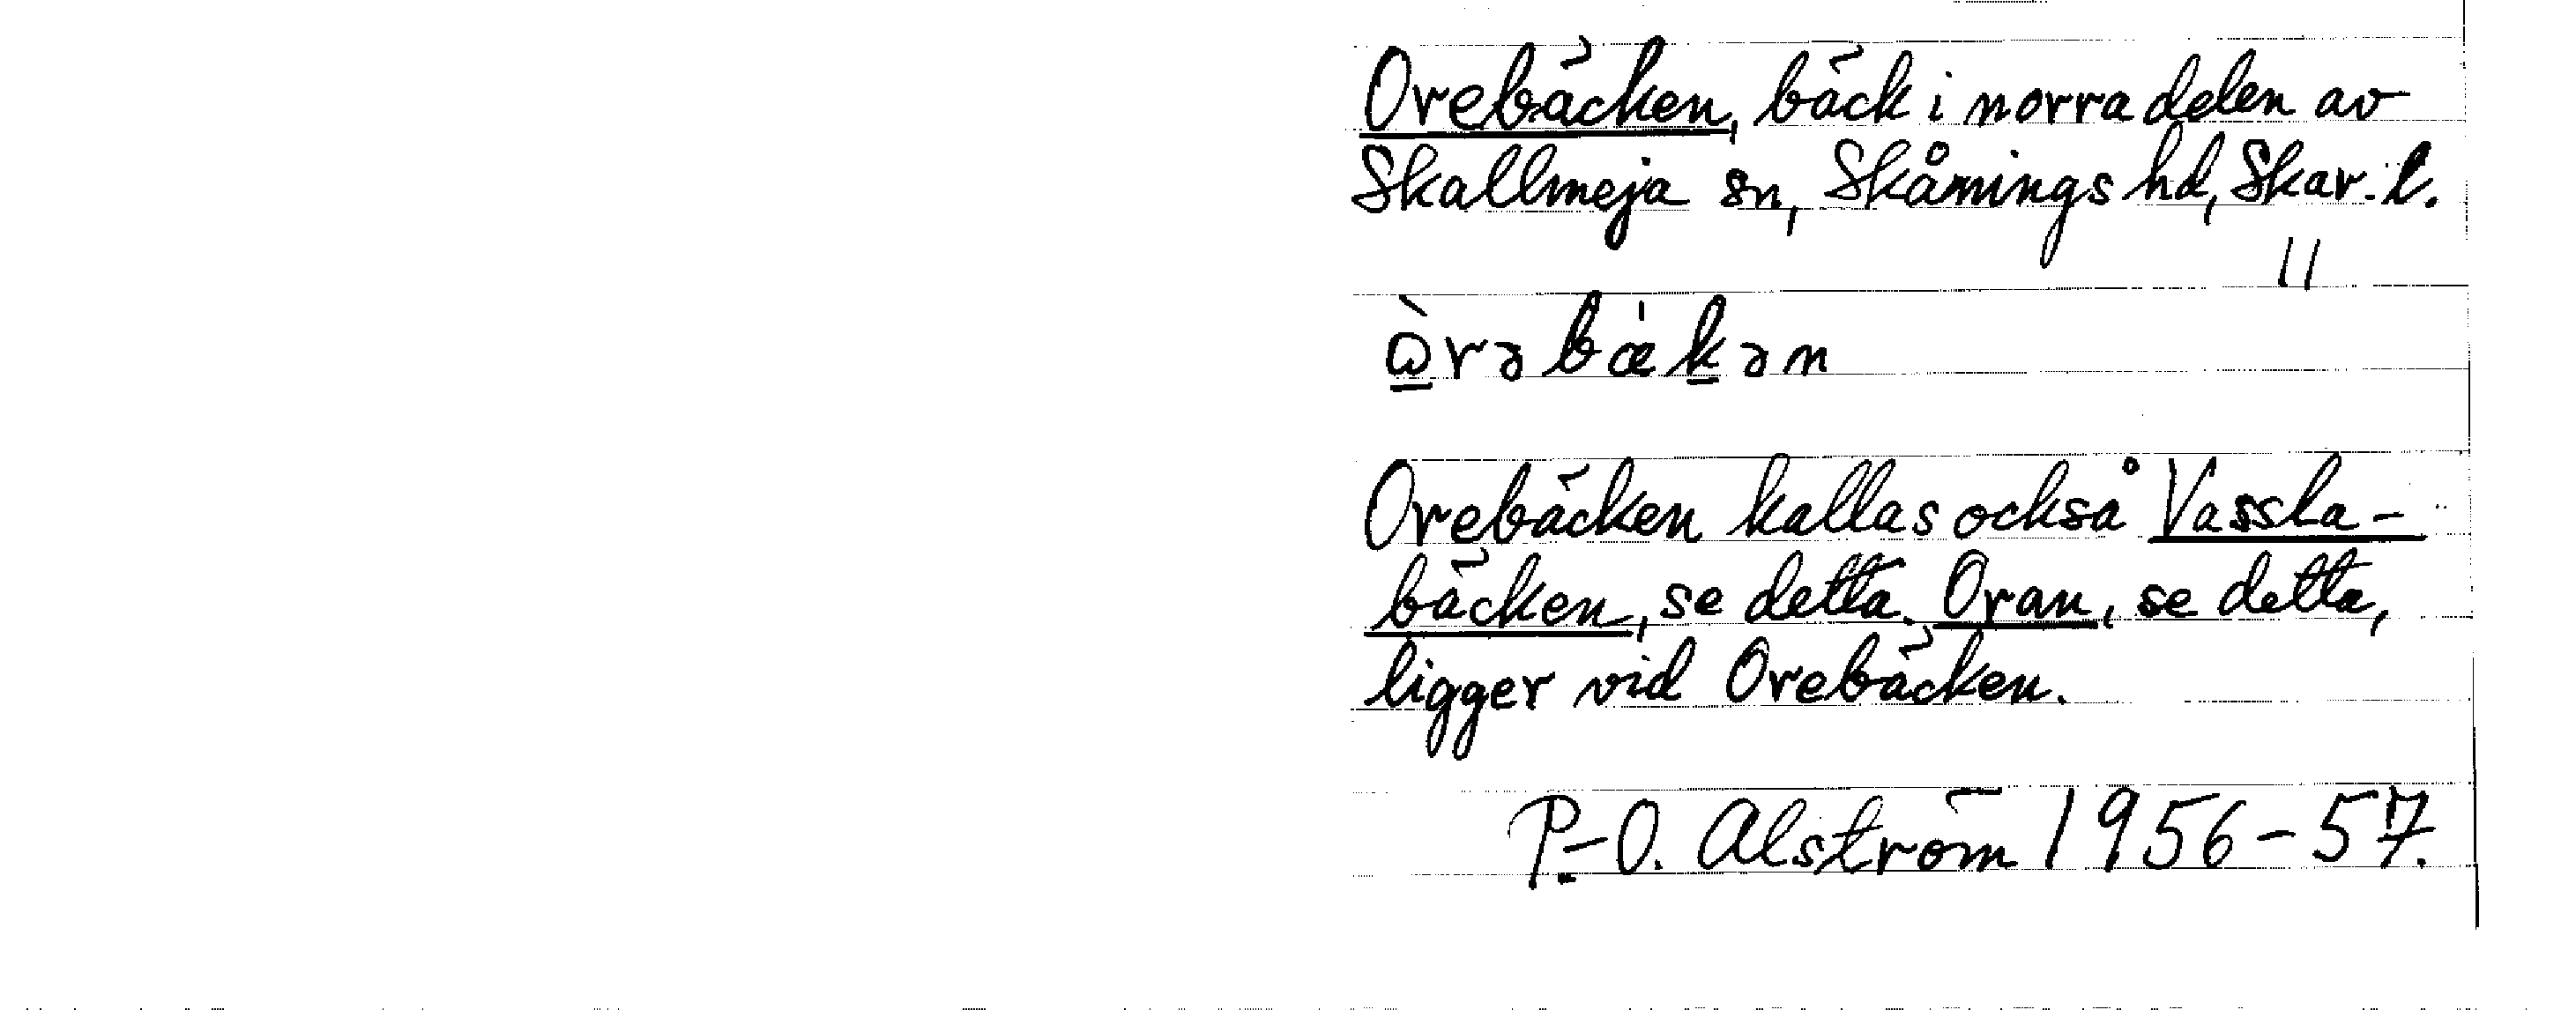 Orebäcken, bäck i norra delen av
Skallmeja sn, Skånings hd, Skar. l.
"
ὼrəbækən
Orebäcken kallas också Vassla-
bäcken, se detta. Oran, se detta,
ligger vid Orebäcken.
P.-O. Alström 1956-57.